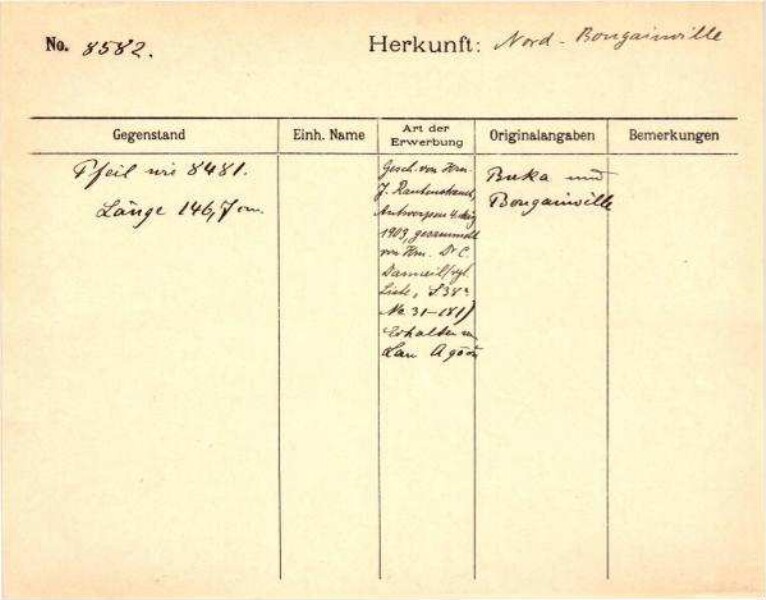 No. 8582.
Herkunft: Nord-Bougainville
Gegenstand
Einh. Name
Art der Erwerbung
Originalangaben
Bemerkungen
Pfeil wie 8481.
Länge 146,7 cm.
Gesch. von Hrn.
J. Rautenstrauch,
Antwerpen 4. Aug
1903, gesammelt
von Hrn. Dr C.
Danneil (vgl.
Liste, S 38a
No 31–181)
Erhalten
Buka und
Bougainville